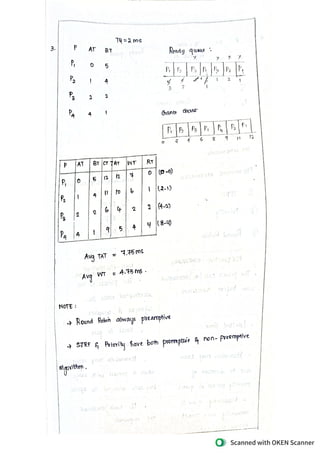 TQ = 2 ms
3. P AT BT Ready queue :
P1 0 5
P2 1 4 P1 P2 P3 P1 P4 P2 P1
P3 2 2
P4 4 1 Gantt chart
P1 P2 P3 P1 P4 P2 P1
0 2 4 6 8 9 11 12
P AT BT CT TAT WT RT
P1 0 5 12 12 7 0 (0-0)
P2 1 4 11 10 6 1 (2-1)
P3 2 2 6 4 2 2 (4-2)
P4 4 1 9 5 4 4 (8-4)
Avg TAT = 7.75ms
Avg WT = 4.75 ms.
NOTE :
→ Round Robin always preemptive
→ STRF & Priority have both preemptive & non-preemptive
algorithm.
Scanned with OKEN Scanner